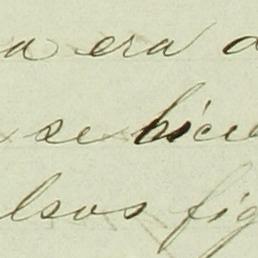 a era
se hicie
lsos fig